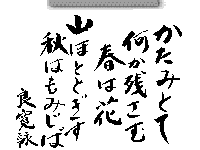 かたみとて
何か残さむ
春は花
山ほとゝぎす
秋はもみぢば
良寛詠